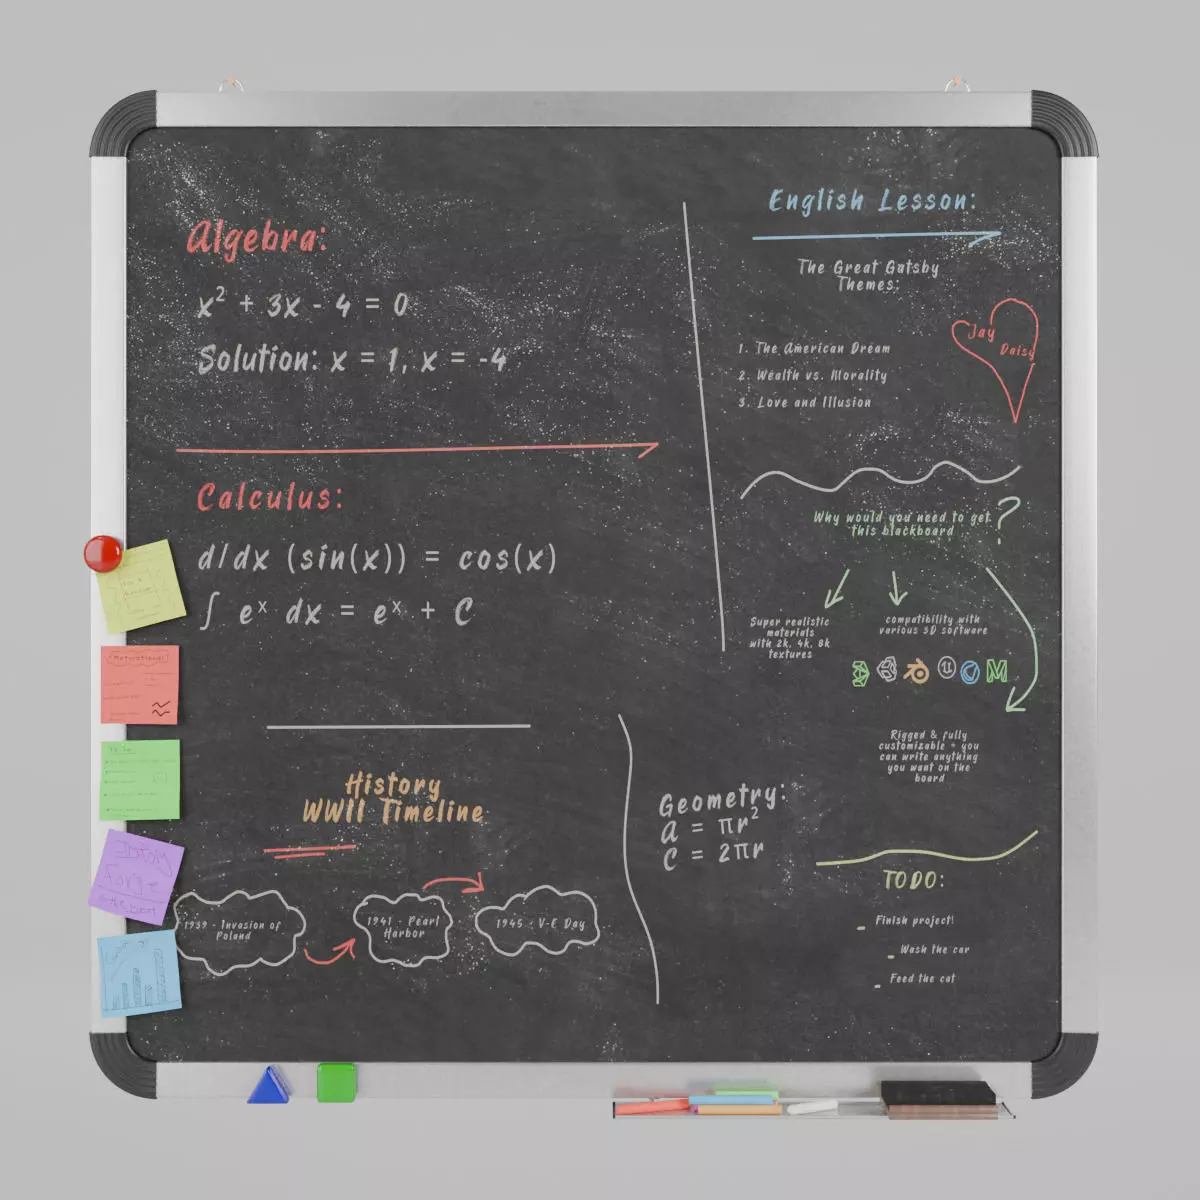 Algebra:
x² + 3x - 4 = 0
Solution: x = 1, x = -4
Calculus:
d/dx (sin(x)) = cos(x)
∫ eˣ dx = eˣ + C
History
WWII Timeline
1939 - Invasion of
Poland
1941 - Pearl
Harbor
1945 - V-E Day
English Lesson:
The Great Gatsby
Themes:
1. The American Dream
2. Wealth vs. Morality
3. Love and Illusion
Jay
Daisy
Why would you need to get
this blackboard
?
Super realistic
materials
with 2k, 4k, 8k
textures
compatibility with
various 3D software
Rigged & fully
customizable - you
can write anything
you want on the
board
Geometry:
A = πr²
C = 2πr
TODO:
- Finish project!
- Wash the car
- Feed the cat
Motivational